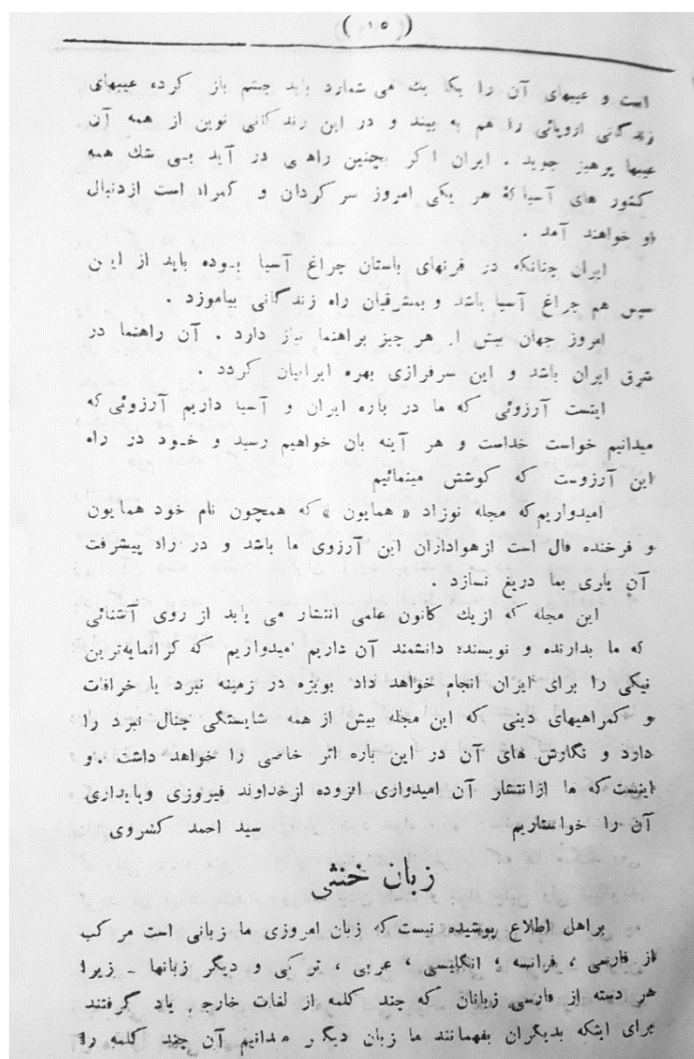 ( ۱۵ )
است و عیبهای آن را یکا یک می شمارد باید چشم باز کرده عیبهای
زندگانی اروپائی را هم به بیند و در این زندگانی نوین از همه آن
عیبها پرهیز جوید . ایران اگر بچنین راهی در آید بی شک همه
کشور های آسیا که هر یکی امروز سرگردان و گمراه است ازدنبال
او خواهند آمد .
ایران چنانکه در قرنهای باستان چراغ آسیا بوده باید از این
سپس هم چراغ آسیا باشد و بمشرقیان راه زندگانی بیاموزد .
امروز جهان بیش از هر چیز براهنما نیاز دارد . آن راهنما در
شرق ایران باشد و این سرفرازی بهره ایرانیان گردد .
اینست آرزوئی که ما در باره ایران و آسیا داریم آرزوئی که
میدانیم خواست خداست و هر آینه بان خواهیم رسید و خود در راه
این آرزوست که کوشش مینمائیم
امیدواریم که مجله نوزاد « همایون » که همچون نام خود همایون
و فرخنده فال است ازهواداران این آرزوی ما باشد و در راه پیشرفت
آن یاری بما دریغ نسازد .
این مجله که از یک کانون علمی انتشار می یابد از روی آشنائی
که ما بدارنده و نویسنده دانشمند آن داریم امیدواریم که گرانمایه‌ترین
نیکی را برای ایران انجام خواهد داد بویژه در زمینه نبرد با خرافات
و گمراهیهای دینی که این مجله بیش از همه شایستگی چنان نبرد را
دارد و نگارش های آن در این باره اثر خاصی را خواهد داشت . و
اینست که ما ازانتشار آن امیدواری افزوده ازخداوند فیروزی وپایداری
آن را خواستاریم سید احمد کسروی
زبان خنثی
براهل اطلاع پوشیده نیست که زبان امروزی ما زبانی است مرکب
از فارسی ، فرانسه ، انگلیسی ، عربی ، ترکی و دیگر زبانها ـ زیرا
هر دسته از فارسی زبانان که چند کلمه از لغات خارجی یاد گرفتند
برای اینکه بدیگران بفهمانند ما زبان دیگر میدانیم آن چند کلمه را